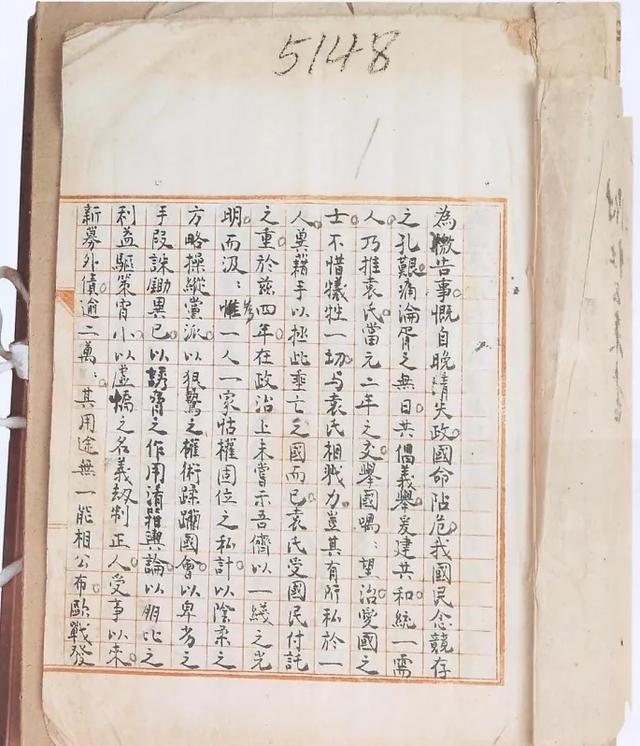 5148
為檄告事。慨自晚清失政。國命阽危。我國民念競存
之孔艱。痛淪胥之無日。共倡義舉。爰建共和。統一需
人。乃推袁氏。當元二年之交。舉國喁:望治。愛國之
士。不惜犧牲一切。与袁氏相戮力。豈其有所私於一
人。冀藉手以拯此垂亡之國而已。袁氏受國民付託
之重。於茲四年。在政治上未嘗示吾儕以一綫之光
明。而汲:惟為一人一家怙權固位之私計。以陰柔之
方略操縱黨派。以狠鷙之權術蹂躪國會。以卑劣之
手段誅鋤異己。以誘脅之作用淆雜輿論。以朋比之
利益驅策宵小。以虛憍之名義劫制正人。受事以來。
新募外債。逾二萬:。其用途無一能相公布。歐戰發